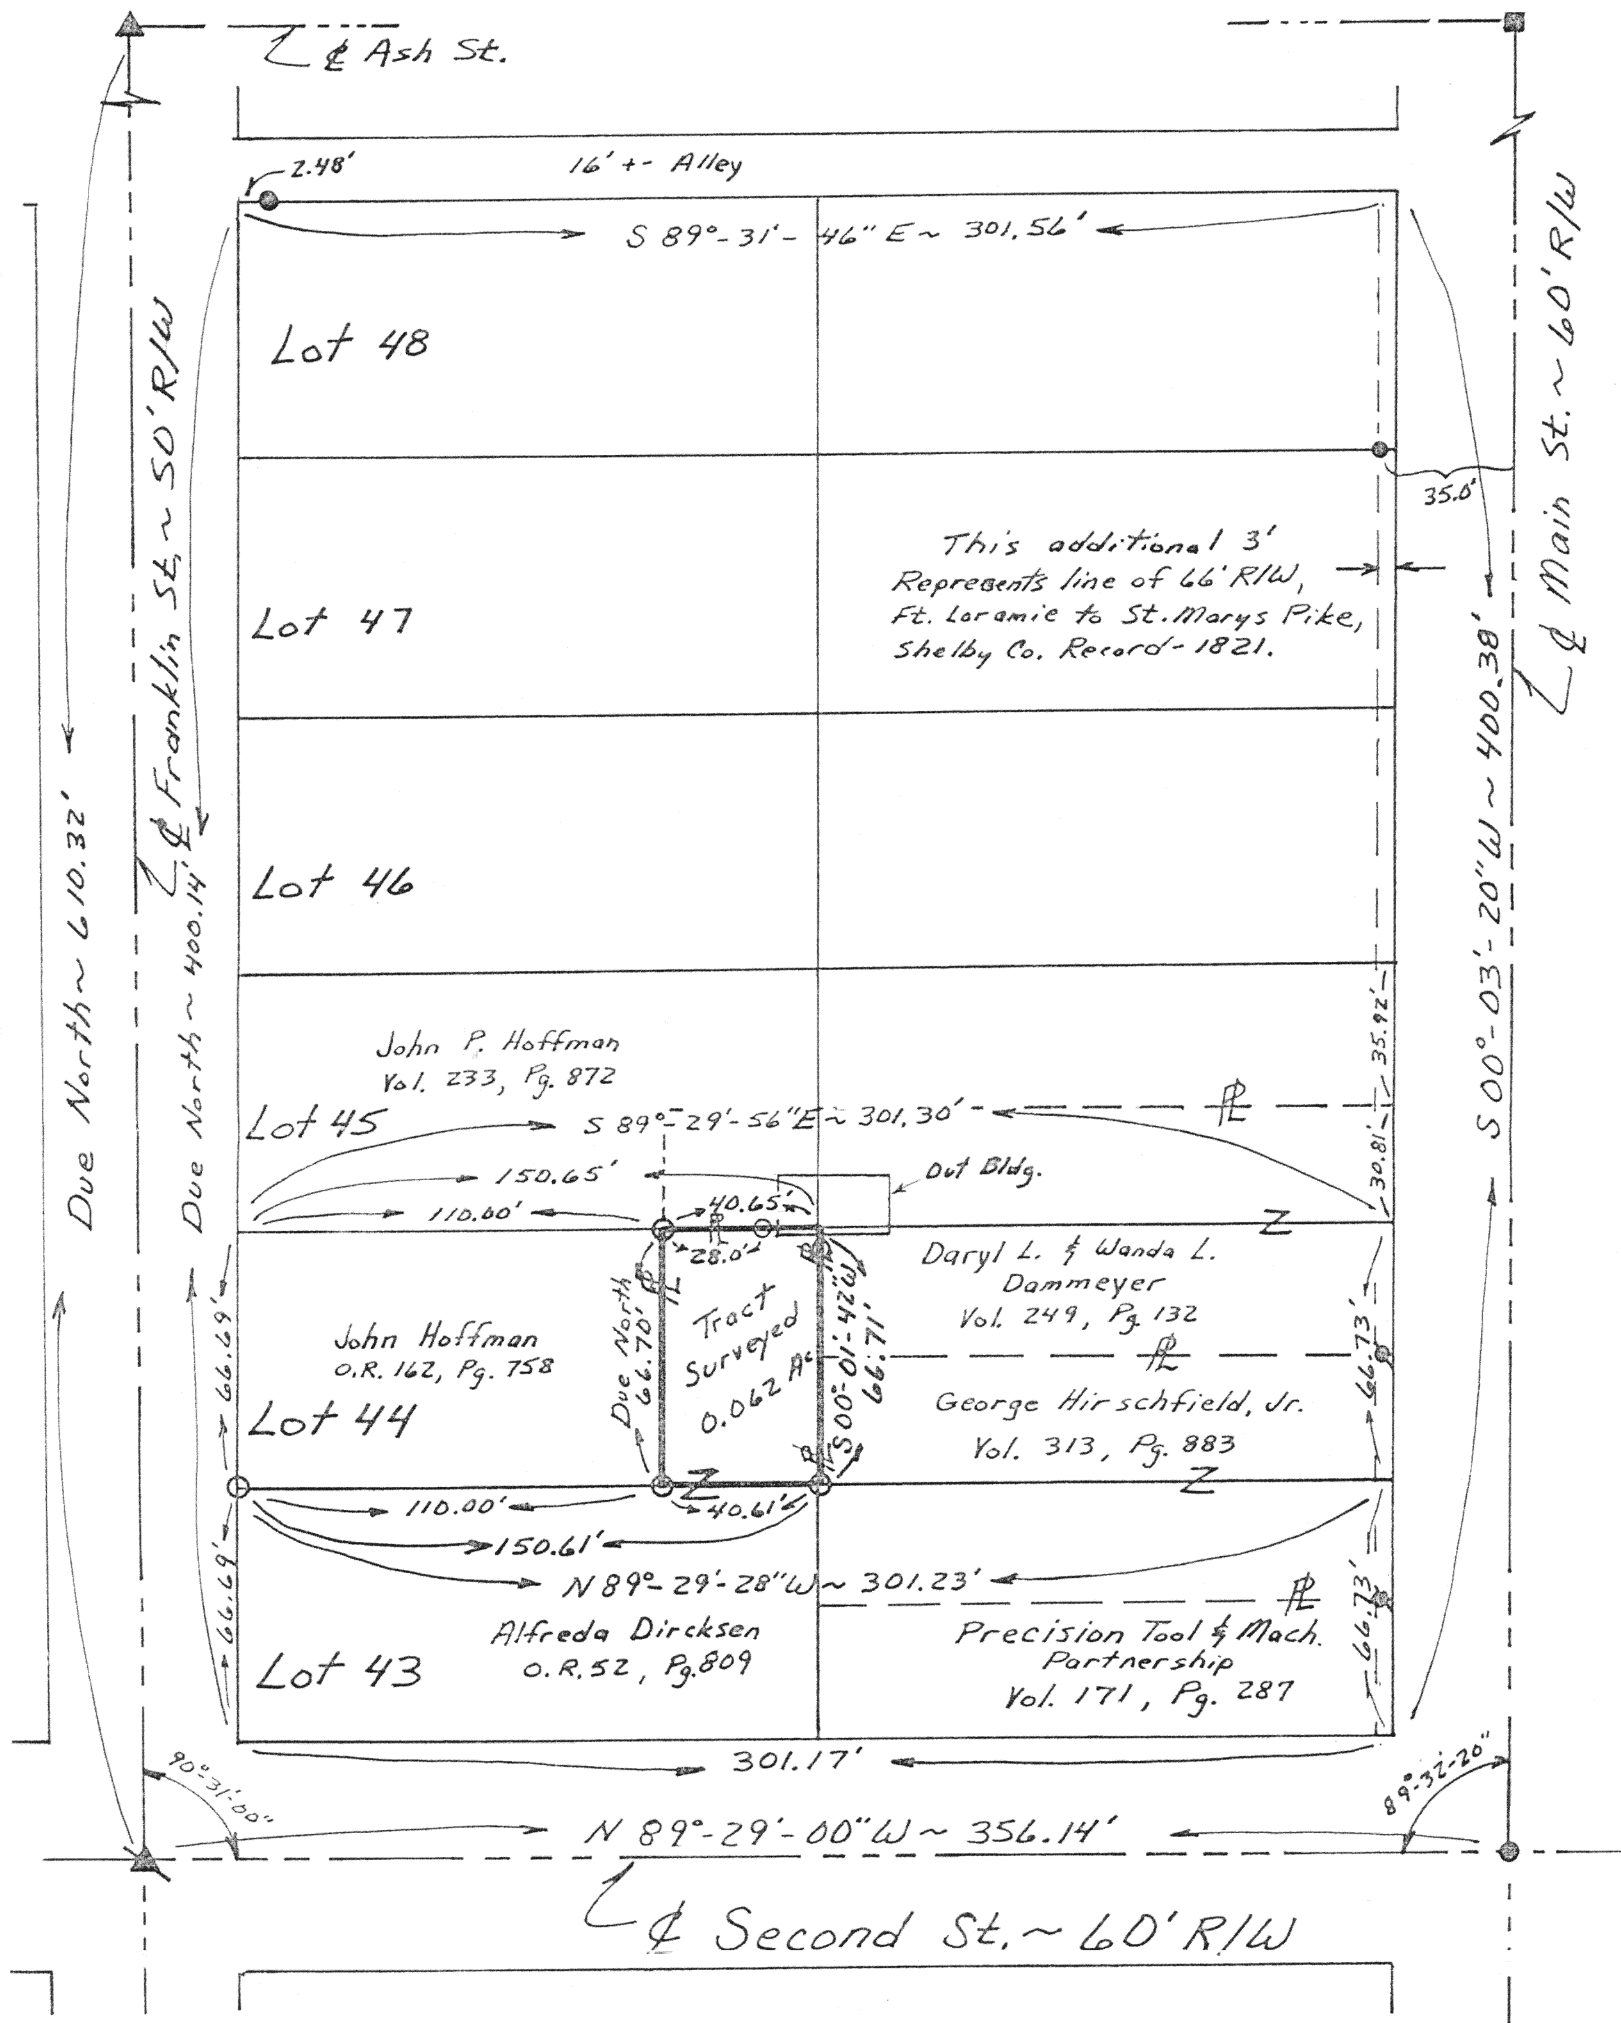 ℄ Ash St.
16' +- Alley
2.48'
S 89°-31'-46" E ~ 301.56'
Lot 48
35.0'
℄ Franklin St. ~ 50' R/W
℄ Main St. ~ 60' R/W
This additional 3'
Represents line of 66' R/W,
Ft. Loramie to St. Marys Pike,
Shelby Co. Record - 1821.
Lot 47
Due North ~ 610.32'
Due North ~ 400.14'
S 00°-03'-20" W ~ 400.38'
Lot 46
35.92'
John P. Hoffman
Vol. 233, Pg. 872
Lot 45
S 89°-29'-56" E ~ 301.30'
PL
30.81'
150.65'
Out Bldg.
110.00'
40.65'
PL
28.0'
Z
PL
PL
Daryl L. & Wanda L.
Dammeyer
Vol. 249, Pg. 132
PL
66.69'
John Hoffman
O.R. 162, Pg. 758
Lot 44
Due North
66.70'
Tract
Surveyed
0.062 Ac
S 00°-01'-42" W
66.71'
66.73'
George Hirschfield, Jr.
Vol. 313, Pg. 883
PL
Z
Z
110.00'
40.61'
150.61'
N 89°-29'-28" W ~ 301.23'
66.69'
PL
66.73'
Alfreda Dircksen
O.R. 52, Pg. 809
Lot 43
Precision Tool & Mach.
Partnership
Vol. 171, Pg. 287
301.17'
90°-31'-00"
89°-32'-20"
N 89°-29'-00" W ~ 356.14'
℄ Second St. ~ 60' R/W